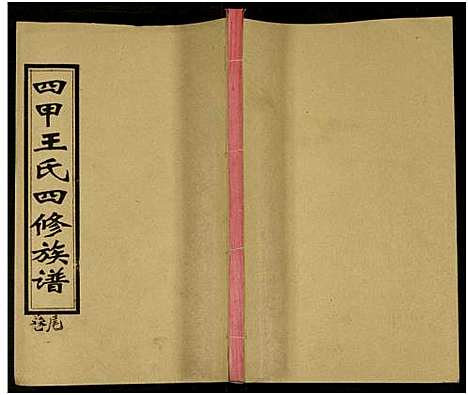 四甲王氏四修族谱
卷尾